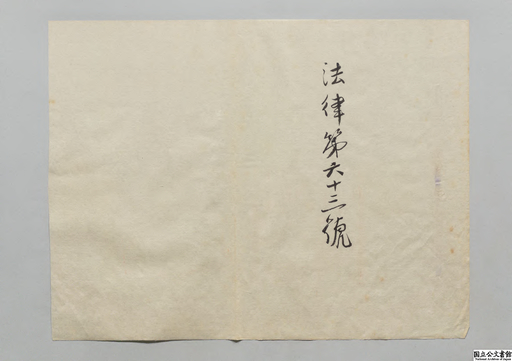 法律第六十三號
国立公文書館
National Archives of Japan